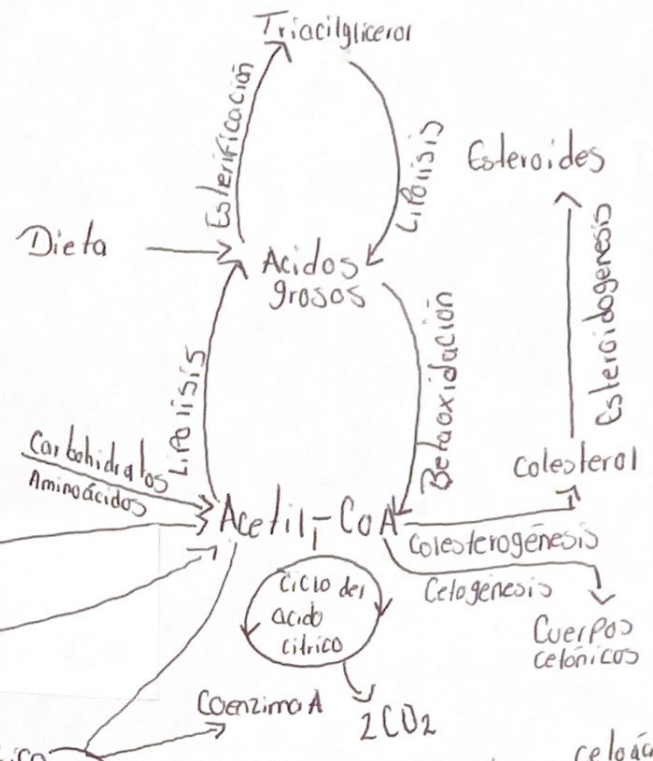 Triacilglicerol
Esterificación
Lipolisis
Esteroides
Dieta
Acidos
grosos
Esteroidogenesis
Lipolisis
Betaoxidación
Carbohidratos
Aminoácidos
Colesterol
Acetil-CoA
Colesterogénesis
Celogénesis
Ciclo del
acido
citrico
Cuerpos
celónicos
Coenzima A
2CO2